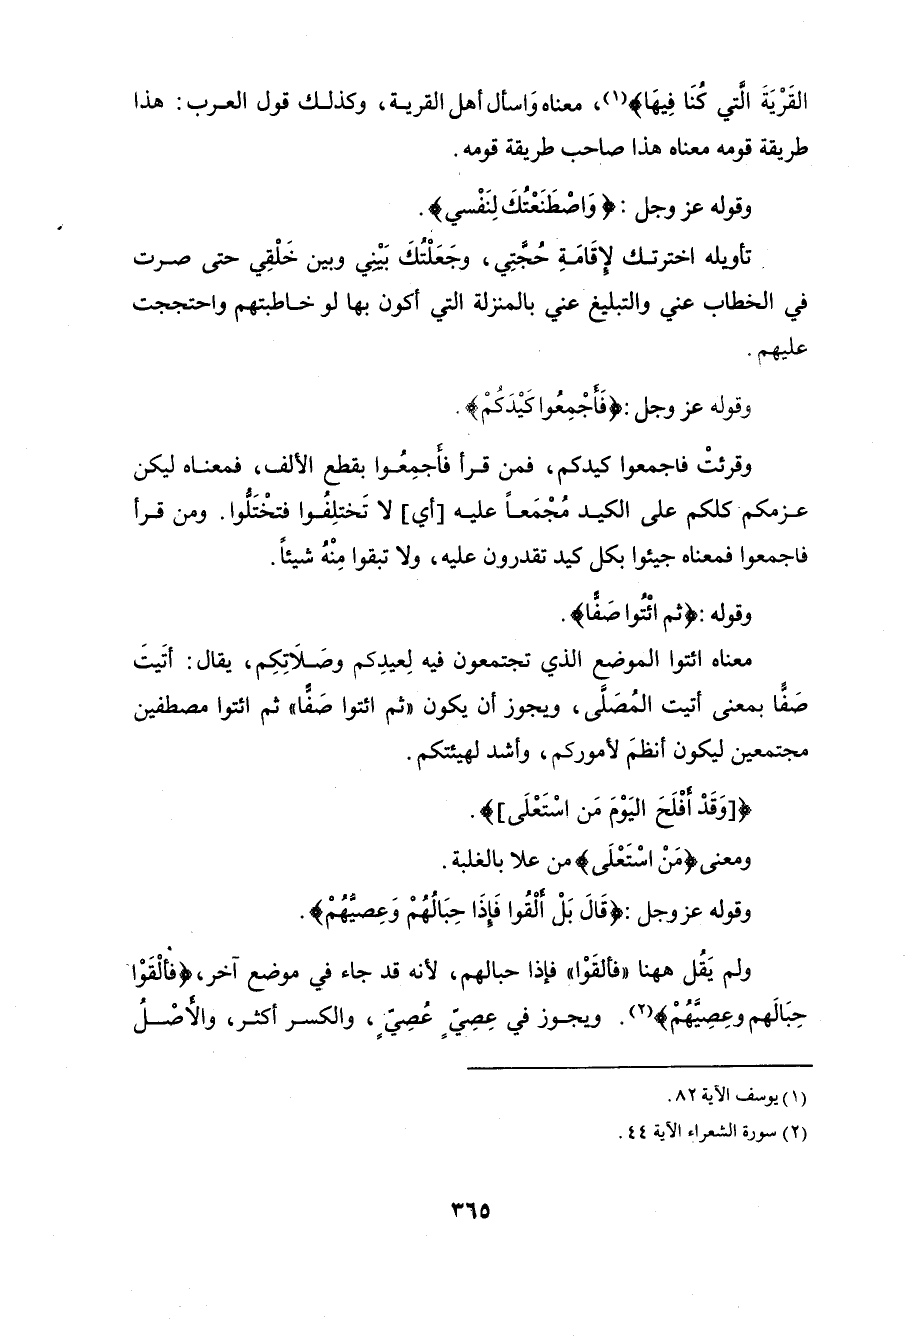 القَرْيَةَ الَّتي كُنَا فِيهَا﴾(١)، معناه وَاسأل أهل القرية، وكذلك قول العرب: هذا
طريقة قومه معناه هذا صاحب طريقة قومه.
وقوله عز وجل: ﴿وَاصْطَنَعْتُكَ لِنَفْسي﴾.
تأويله اخترتك لإِقَامَةِ حُجَّتِي، وجَعَلْتُكَ بَيْنِي وبين خَلْقِي حتى صرت
في الخطاب عني والتبليغ عني بالمنزلة التي أكون بها لو خاطبتهم واحتججت
عليهم.
وقوله عز وجل: ﴿فَأَجْمِعُوا كَيْدَكُمْ﴾.
وقرئتْ فاجمعوا كيدكم، فمن قرأ فأَجمِعُوا بقطع الألف، فمعناه ليكن
عزمكم كلكم على الكيد مُجْمَعاً عليه [أي] لا تَختلِفُوا فتخْتَلُّوا. ومن قرأ
فاجمعوا فمعناه جيئوا بكل كيد تقدرون عليه، ولا تبقوا مِنْهُ شيئاً.
وقوله: ﴿ثم ائْتُوا صَفًّا﴾.
معناه ائتوا الموضع الذي تجتمعون فيه لِعيدِكم وصَلَاتِكِم، يقال: أَتَيتَ
صَفًّا بمعنى أتيت المُصَلَّى، ويجوز أن يكون «ثم ائتوا صَفًّا» ثم ائتوا مصطفين
مجتمعين ليكون أنظمَ لأموركم، وأشد لهيئتكم.
﴿[وَقَدْ أَفْلَحَ اليَوْمَ مَن اسْتَعْلَى]﴾.
ومعنى ﴿مَنْ اسْتَعْلَى﴾ من علا بالغلبة.
وقوله عز وجل: ﴿قَالَ بَلْ أَلْقُوا فَإِذَا حِبَالُهُمْ وَعِصيُّهُمْ﴾.
ولم يَقُل ههنا «فألقَوْا» فإذا حبالهم، لأنه قد جاء في موضع آخر، ﴿فأَلْقَوْا
حِبَالَهم وعِصِيَّهُمْ﴾(٢). ويجوز في عِصِيّ ٍ عُصِيّ ٍ، والكسر أكثر، والأَصْلُ
(١) يوسف الآية ٨٢.
(٢) سورة الشعراء الآية ٤٤.
٣٦٥